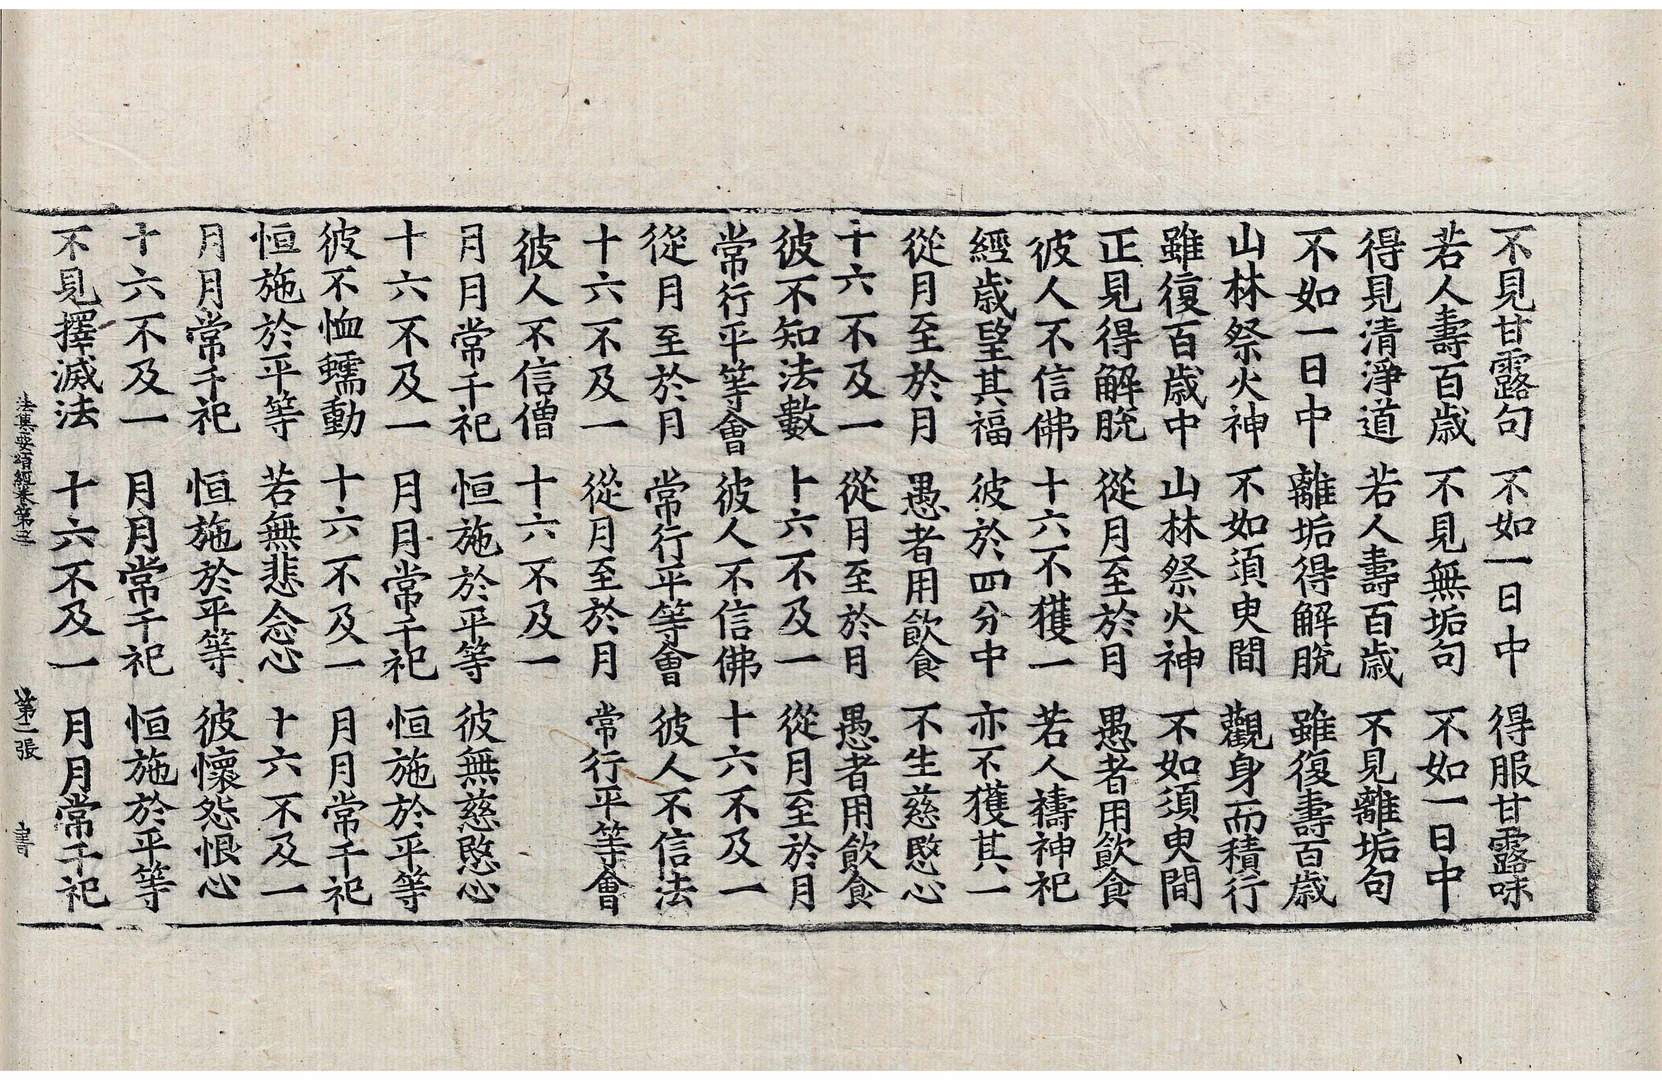 不見甘露句　不如一日中　得服甘露味
若人壽百歲　不見無垢句　不如一日中
得見清淨道　若人壽百歲　不見離垢句
不如一日中　離垢得解脫　雖復壽百歲
山林祭火神　不如須臾間　觀身而積行
雖復百歲中　山林祭火神　不如須臾間
正見得解脫　從月至於月　愚者用飲食
彼人不信佛　十六不獲一　若人禱神祀
經歲望其福　彼於四分中　亦不獲其一
從月至於月　愚者用飲食　不生慈愍心
十六不及一　從月至於月　愚者用飲食
彼不知法數　十六不及一　從月至於月
常行平等會　彼人不信佛　十六不及一
從月至於月　常行平等會　彼人不信法
十六不及一　從月至於月　常行平等會
彼人不信僧　十六不及一
月月常千祀　恒施於平等　彼無慈愍心
十六不及一　月月常千祀　恒施於平等
彼不恤蠕動　十六不及一　月月常千祀
恒施於平等　若無悲念心　十六不及一
月月常千祀　恒施於平等　彼懷怨恨心
十六不及一　月月常千祀　恒施於平等
不見擇滅法　十六不及一　月月常千祀
法集要頌經卷第三　第二張　書